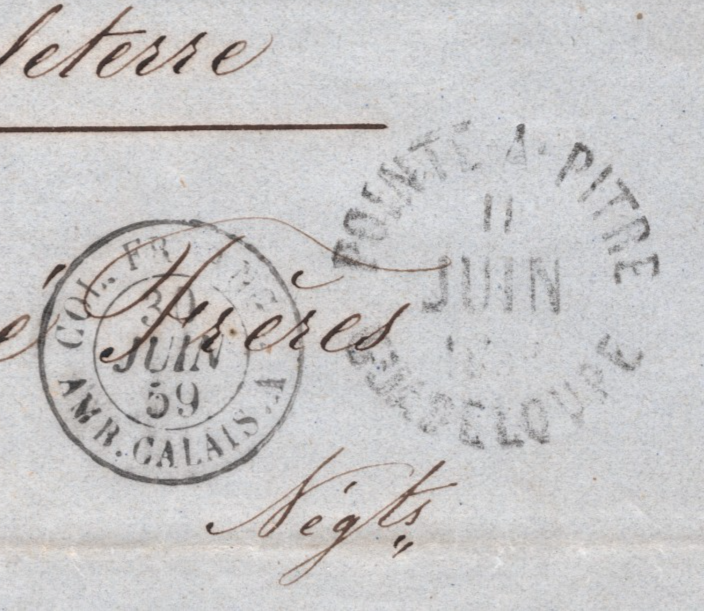 leterre
POINTE-A-PITRE
11
JUIN
GUADELOUPE
COL. FR. ANG.
30
JUIN
59
AMB. CALAIS. A
é Frères
Négts